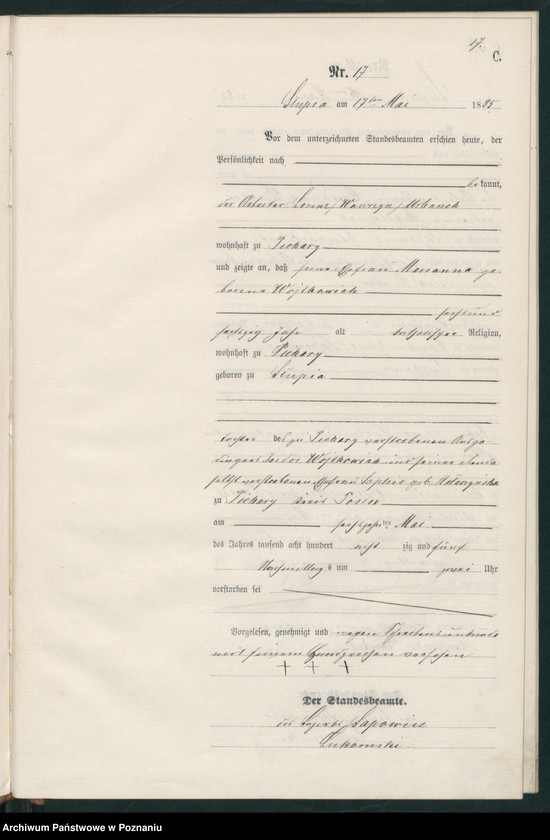 17.
C.
Nr. 17
Slupia am 17ten Mai 1885
Vor dem unterzeichneten Standesbeamten erschien heute, der
Persönlichkeit nach
bekannt,
der Arbeiter Lorenz /Wawrzyn/ Urbanek
wohnhaft zu Piekary
und zeigte an, daß seine Ehefrau Marianna ge-
borene Wojtkowiak
sechsund
sechzig Jahr alt katholischer Religion,
wohnhaft zu Piekary
geboren zu Slupia
Tochter des zu Piekary verstorbenen
Wojtkowiak und seiner ebenda
selbst verstorbenen Ehefrau geb.
zu Piekary Kreis Posen
am sechszehnten Mai
des Jahres tausend acht hundert acht zig und fünf
Nachmittags um zwei Uhr
verstorben sei
Vorgelesen, genehmigt und wegen Schreibensunkunde
mit seinem Handzeichen versehen
+ + +
Der Standesbeamte.
Lukomski
Archiwum Państwowe w Poznaniu